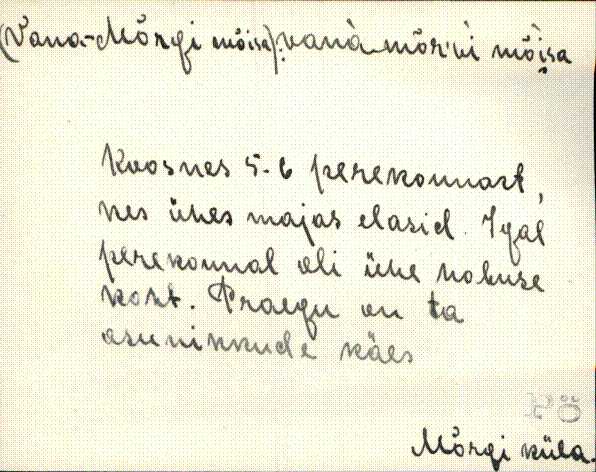 (Vana-Mõrgi mõisa) vanà mõrgi mõisa
Koosnes 5-6 perekonnast,
kes ühes majas elasid. Igal
perekonnal oli ühe hobuse
koht. Praegu on ta
asunikkude käes
Mõrgi küla.